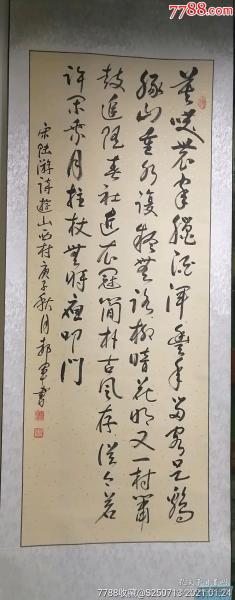 莫笑农家腊酒浑丰年留客足鸡
豚山重水複疑无路柳暗花明又一村箫
鼓追随春社近衣冠简朴古风存从今若
许闲乘月拄杖无时夜叩门
宋陆游诗游山西村庚子秋月郝军书
7788.com
7788收藏@S250713 2021.01.24